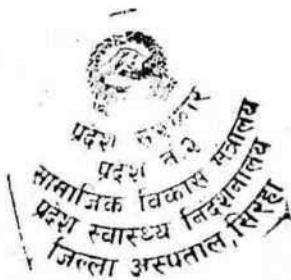 प्रदेश सरकार
प्रदेश नं.२
सामाजिक विकास मन्त्रालय
प्रदेश स्वास्थ्य निर्देशनालय
जिल्ला अस्पताल, सिरहा